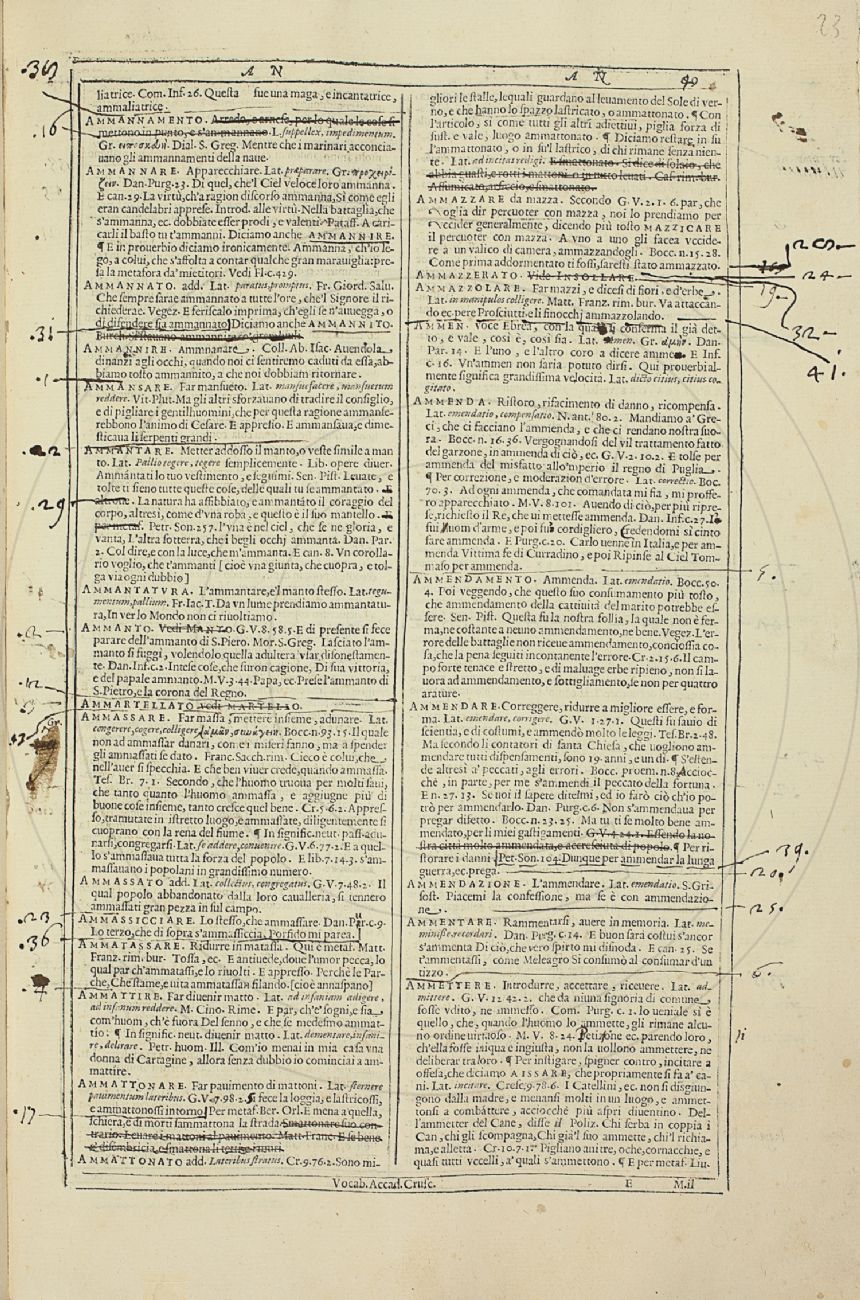 23
A N
liatrice. Com. Inf. 26. Questa fue una maga, e incantatrice,
ammaliatrice.
AMMANNAMENTO. Arredo, o arnese, per lo quale le cose si
mettono in punto, e s'ammannano. L. suppellex, impedimentum.
Gr. Dial. S. Greg. Mentre che i marinari acconcia-
uano gli ammannamenti della naue.
AMMANNARE. Apparecchiare. Lat. præparare. Gr.
Dan. Purg. 23. Di quel, che'l Ciel veloce loro ammanna.
E can. 29. La virtù, ch'a ragion discorso ammanna, Sì come egli
eran candelabri apprese. Introd. alle virtù. Nella battaglia, che
s'ammanna, ec. dobbiate esser prodi, e valenti. Pataff. A cari-
carli il basto tu t'ammanni. Diciamo anche AMMANNIRE.
¶ E in prouerbio diciamo ironicamente. Ammanna, ch'io le-
go, a colui, che s'affolta a contar qualche gran marauiglia: pre-
sa la metafora da' mietitori. Vedi Fl. c. 429.
AMMANNATO. add. Lat. paratus, promptus. Fr. Giord. Salu.
Che sempre sarae ammannato a tutte l'ore, che'l Signore il ri-
chiederae. Vegez. E feriscalo imprima, ch'egli se n'auuegga, o
di difendere sia ammannato] Diciamo anche AMMANNITO.
AMMANNIRE. Ammannare. Coll. Ab. Isac. Auendola
dinanzi agli occhi, quando noi ci sentiremo caduti da essa, ab-
biamo tosto ammannito, a che noi dobbiam ritornare.
AMMANSARE. Far mansueto. Lat. mansuefacere, mansuetum
reddere. Vit. Plut. Ma gli altri sforzauano di tradire il consiglio,
e di pigliare i gentilhuomini, che per questa ragione ammanse-
rebbono l'animo di Cesare. E appresso. E ammansaua, e dime-
sticaua li serpenti grandi.
AMMANTARE. Metter addosso il manto, o veste simile a man
to. Lat. Pallio tegere, tegere semplicemente. Lib. opere diuer.
Ammantati lo tuo vestimento, e seguimi. Sen. Pist. Leuate, e
tolte ti sieno tutte queste cose, delle quali tu se ammantato. E
altroue. La natura ha affibbiato, e ammantato il coraggio del
corpo, altresì, come d'vna roba, e questo è il suo mantello.
per metaf. Petr. Son. 257. l'vna è nel ciel, che se ne gloria, e
vanta, L'altra sotterra, che i begli occhi ammanta. Dan. Par.
2. Col dire, e con la luce, che m'ammanta. E can. 8. Vn corolla-
rio voglio, che t'ammanti [cioè vna giunta, che cuopra, e tol-
ga via ogni dubbio]
AMMANTATVRA. L'ammantare, e'l manto stesso. Lat. tegu-
mentum, pallium. Fr. Iac. T. Da vn lume prendiamo ammantatu-
ra, In ver lo Mondo non ci riuoltiamo.
AMMANTO. Vedi MANTO. G. V. 8. 58. 5. E di presente si fece
parare dell'ammanto di S. Piero. Mor. S. Greg. Lasciato l'am-
manto si fuggì, volendolo quella adultera vsar disonestamen-
te. Dan. Inf. c. 2. Intese cose, che furon cagione, Di sua vittoria,
e del papale ammanto. M. V. 3. 44. Papa, ec. Prese l'ammanto di
S. Pietro, e la corona del Regno.
AMMARTELLATO vedi MARTELLO.
AMMASSARE. Far massa, mettere insieme, adunare. Lat.
congerere, cogere, colligere. Bocc. n. 93. 15. Il quale
non ad ammassar danari, come i miseri fanno, ma a spender
gli ammassati se dato. Franc. Sacch. rim. Cieco è colui, che
nell'auer si specchia. E che ben viuer crede, quando ammassa.
Tes. Br. 7. 1. Secondo, che l'huomo truoua per molti saui,
che tanto quanto l'huomo ammassa, e aggiugne più di
buone cose insieme, tanto cresce quel bene. Cr. 5. 6. 2. Appres-
so, tramutate in istretto luogo, e ammassate, diligentemente si
cuoprano con la rena del fiume. ¶ In signific. neut. pass. adu-
narsi, congregarsi. Lat. se addere, conuenire. G. V. 6. 77. 2. E a quel-
lo s'ammassaua tutta la forza del popolo. E lib. 7. 14. 3. s'am-
massauano i popolani in grandissimo numero.
AMMASSATO add. Lat. collectus, congregatus. G. V. 7. 48. 2. Il
qual popolo abbandonato dalla loro caualleria, si tennero
ammassati gran pezza in sul campo.
AMMASSICCIARE. Lo stesso, che ammassare. Dan. Pur. c. 9.
Lo terzo, che di sopra s'ammassiccia, Porfido mi parea.
AMMATASSARE. Ridurre in matassa. Qui è metaf. Matt.
Franz. rim. bur. Tossa, ec. E antiuede, doue l'umor pecca, lo
qual par ch'ammatassi, e lo riuolti. E appresso. Perchè le Par-
che, Che stame, e vita ammatassan filando. [cioè annaspano]
AMMATTIRE. Far diuenir matto. Lat. ad insaniam adigere,
ad insanum reddere. M. Cino. Rime. E par, ch'e' sogni, e sia
com'huom, ch'è fuora Del senno, e che se medesimo ammat-
tio: ¶ In signific. neut. diuenir matto. Lat. dementare, insani-
re, delirare. Petr. huom. Ill. Com'io menai in mia casa vna
donna di Cartagine, allora senza dubbio io cominciai a am-
mattire.
AMMATTONARE. Far pauimento di mattoni. Lat. sternere
pauimentum lateribus. G. V. 7. 98. 2. Si fece la loggia, e lastricossi,
e ammattonossi intorno] Per metaf. Ber. Orl. E mena a quella,
schiera, e di morti s'ammattona la strada. Smattonare suo con-
trario. Leuare i mattoni al pauimento. Matt. Franc. E se bene
e' disembricia, e smattona li tetti e i muri.
AMMATTONATO add. Lateribus stratus. Cr. 9. 76. 2. Sono mi-
A N
49
gliori le stalle, le quali guardano al leuamento del Sole di ver-
no, e che hanno lo spazzo lastricato, o ammattonato. ¶ Con
l'articolo, sì come tutti gli altri adiettiui, piglia forza di
sust. e vale, luogo ammattonato. ¶ Diciamo restare in su
l'ammattonato, o in su'l lastrico, di chi rimane senza nien-
te. Lat. ad incitas redigi. E smattonato. Si dice di solaio, che
abbia guasti, e rotti i mattoni o in tutto leuati. Cas. rim. bur.
Affumicato, arsiccio, e smattonato.
AMMAZZARE da mazza. Secondo G. V. 2. 1. 6. par, che
voglia dir percuoter con mazza, noi lo prendiamo per
Vccider generalmente, dicendo più tosto MAZZICARE
il percuoter con mazza. A vno a uno gli facea vccide-
re a un valico di camera, ammazzandogli. Bocc. n. 15. 28.
Come prima addormentato ti fossi, saresti stato ammazzato.
AMMAZZERATO. Vide INSOLLARE.
AMMAZZOLARE. Far mazzi, e dicesi di fiori, e d'erbe.
Lat. in manipulos colligere. Matt. Franz. rim. bur. Va attaccan-
do ec. pere Prosciutti, e li finocchj ammazzolando.
AMMEN. voce Ebrea, con la quale si conferma il già det-
to, e vale, così è, così sia. Lat. amen. Gr. Dan.
Par. 14. E l'uno, e l'altro coro a dicere ammen. E Inf.
c. 16. Vn'ammen non saria potuto dirsi. Qui prouerbial-
mente significa grandissima velocità. Lat. dicto citius, citius co-
gitato.
AMMENDA. Ristoro, rifacimento di danno, ricompensa.
Lat. emendatio, compensatio. N. ant. 80. 2. Mandiamo a' Gre-
ci, che ci facciano l'ammenda, e che ci rendano nostra suo-
ra. Bocc. n. 16. 36. Vergognandosi del vil trattamento fatto
del garzone, in ammenda di ciò, ec. G. V. 2. 10. 2. E tolse per
ammenda del misfatto all'imperio il regno di Puglia.
¶ Per correzione, e moderazion d'errore. Lat. correctio. Boc.
70. 3. Ad ogni ammenda, che comandata mi fia, mi proffe-
ro apparecchiato. M. V. 8. 101. Auendo di ciò, per più ripre-
se, richiesto il Re, che ui mettesse ammenda. Dan. Inf. c. 27. Io
fui huom d'arme, e poi fui cordigliero, Credendomi sì cinto
fare ammenda. E Purg. c. 20. Carlo uenne in Italia, e per am-
menda Vittima fe di Curradino, e poi Ripinse al Ciel Tom-
maso per ammenda.
AMMENDAMENTO. Ammenda. Lat. emendatio. Bocc. 50.
4. Poi veggendo, che questo suo consumamento più tosto,
che ammendamento della cattiuità del marito potrebbe es-
sere. Sen. Pist. Questa fu la nostra follia, la quale non è fer-
ma, ne costante a neuno ammendamento, ne bene. Vegez. L'er-
rore delle battaglie non riceue ammendamento, conciossia co-
sa, che la pena seguiti incontanente l'errore. Cr. 2. 15. 6. Il cam-
po forte tenace e stretto, e di maluage erbe ripieno, non si la-
uora ad ammendamento, e sottigliamento, se non per quattro
arature.
AMMENDARE. Correggere, ridurre a migliore essere, e for-
ma. Lat. emendare, corrigere. G. V. 1. 27. 1. Questi fu sauio di
scientia, e di costumi, e ammendò molto le leggi. Tes. Br. 2. 48.
Ma secondo li contatori di santa Chiesa, che uogliono am-
mendare tutti dispensamenti, sono 19. anni, e un dì. ¶ S'esten-
de altresì a' peccati, agli errori. Bocc. proem. n. 8. Accioc-
chè, in parte, per me s'ammendi il peccato della fortuna.
E n. 27. 13. Se noi il sapere ditelmi, ed io farò ciò ch'io po-
trò per ammendarlo. Dan. Purg. c. 6. Non s'ammendaua per
pregar difetto. Bocc. n. 23. 25. Ma tu ti se molto bene am-
mendato, per li miei gastigamenti. G. V. 4. 24. 1. Essendo la no-
stra città molto ammendata, e accresciuta di popolo. ¶ Per ri-
storare i danni. Pet. Son. 104. Dunque per ammendar la lunga
guerra, ec. prega.
AMMENDAZIONE. L'ammendare. Lat. emendatio. S. Gri-
sost. Piacemi la confessione, ma se è con ammendazio-
ne.
AMMENTARE. Rammentarsi, auere in memoria. Lat. me-
minisse, recordari. Dan. Purg. c. 14. E buon sarà costui s'ancor
s'ammenta Di ciò, che vero spirto mi disnoda. E can. 25. Se
t'ammentassi, come Meleagro Si consumò al consumar d'un
tizzo.
AMMETTERE. Introdurre, accettare, riceuere. Lat. ad-
mittere. G. V. 12. 42. 2. che da niuna signoria di comune
fosse vdito, ne ammesso. Com. Purg. c. 1. lo ueniale si è
quello, che, quando l'huomo lo ammette, gli rimane alcu-
no ordine uirtuoso. M. V. 8. 24. Petizione ec. parendo loro,
ch'ella fosse iniqua e ingiusta, non la uollono ammettere, ne
deliberar tra loro. ¶ Per instigare, spigner contro, incitare a
offesa, che diciamo AISSARE, che propriamente si fa a' ca-
ni. Lat. incitare. Cresc. 9. 78. 6. I Catellini, ec. non si disgiun-
gon dalla madre, e menansi molti in un luogo, e ammet-
tonsi a combattere, acciocchè più aspri diuentino. Del-
l'ammetter del Cane, disse il Poliz. Chi serba in coppia i
Can, chi gli scompagna, Chi già'l suo ammette, chi'l richia-
ma, e alletta. Cr. 10. 7. 1. Pigliano anitre, oche, cornacchie, e
quasi tutti vccelli, a' quali s'ammettono. ¶ E per metaf. Liu.
Vocab. Accad. Crusc.
E
M. il
16
31
1
22
29
2
12
23
36
17
24
19
32
41.
5.
39.
20.
25.
6.